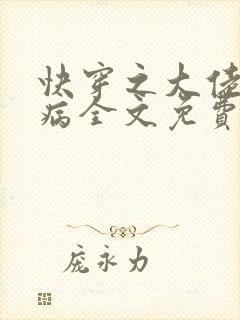 快穿之大佬
病全文免費
庞永力